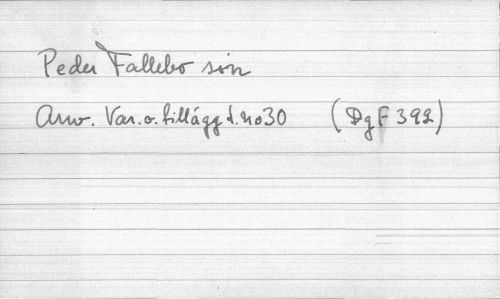 Peder Fallebo son
Arw. Var. o. tillägg t. no 30 (DgF 392)